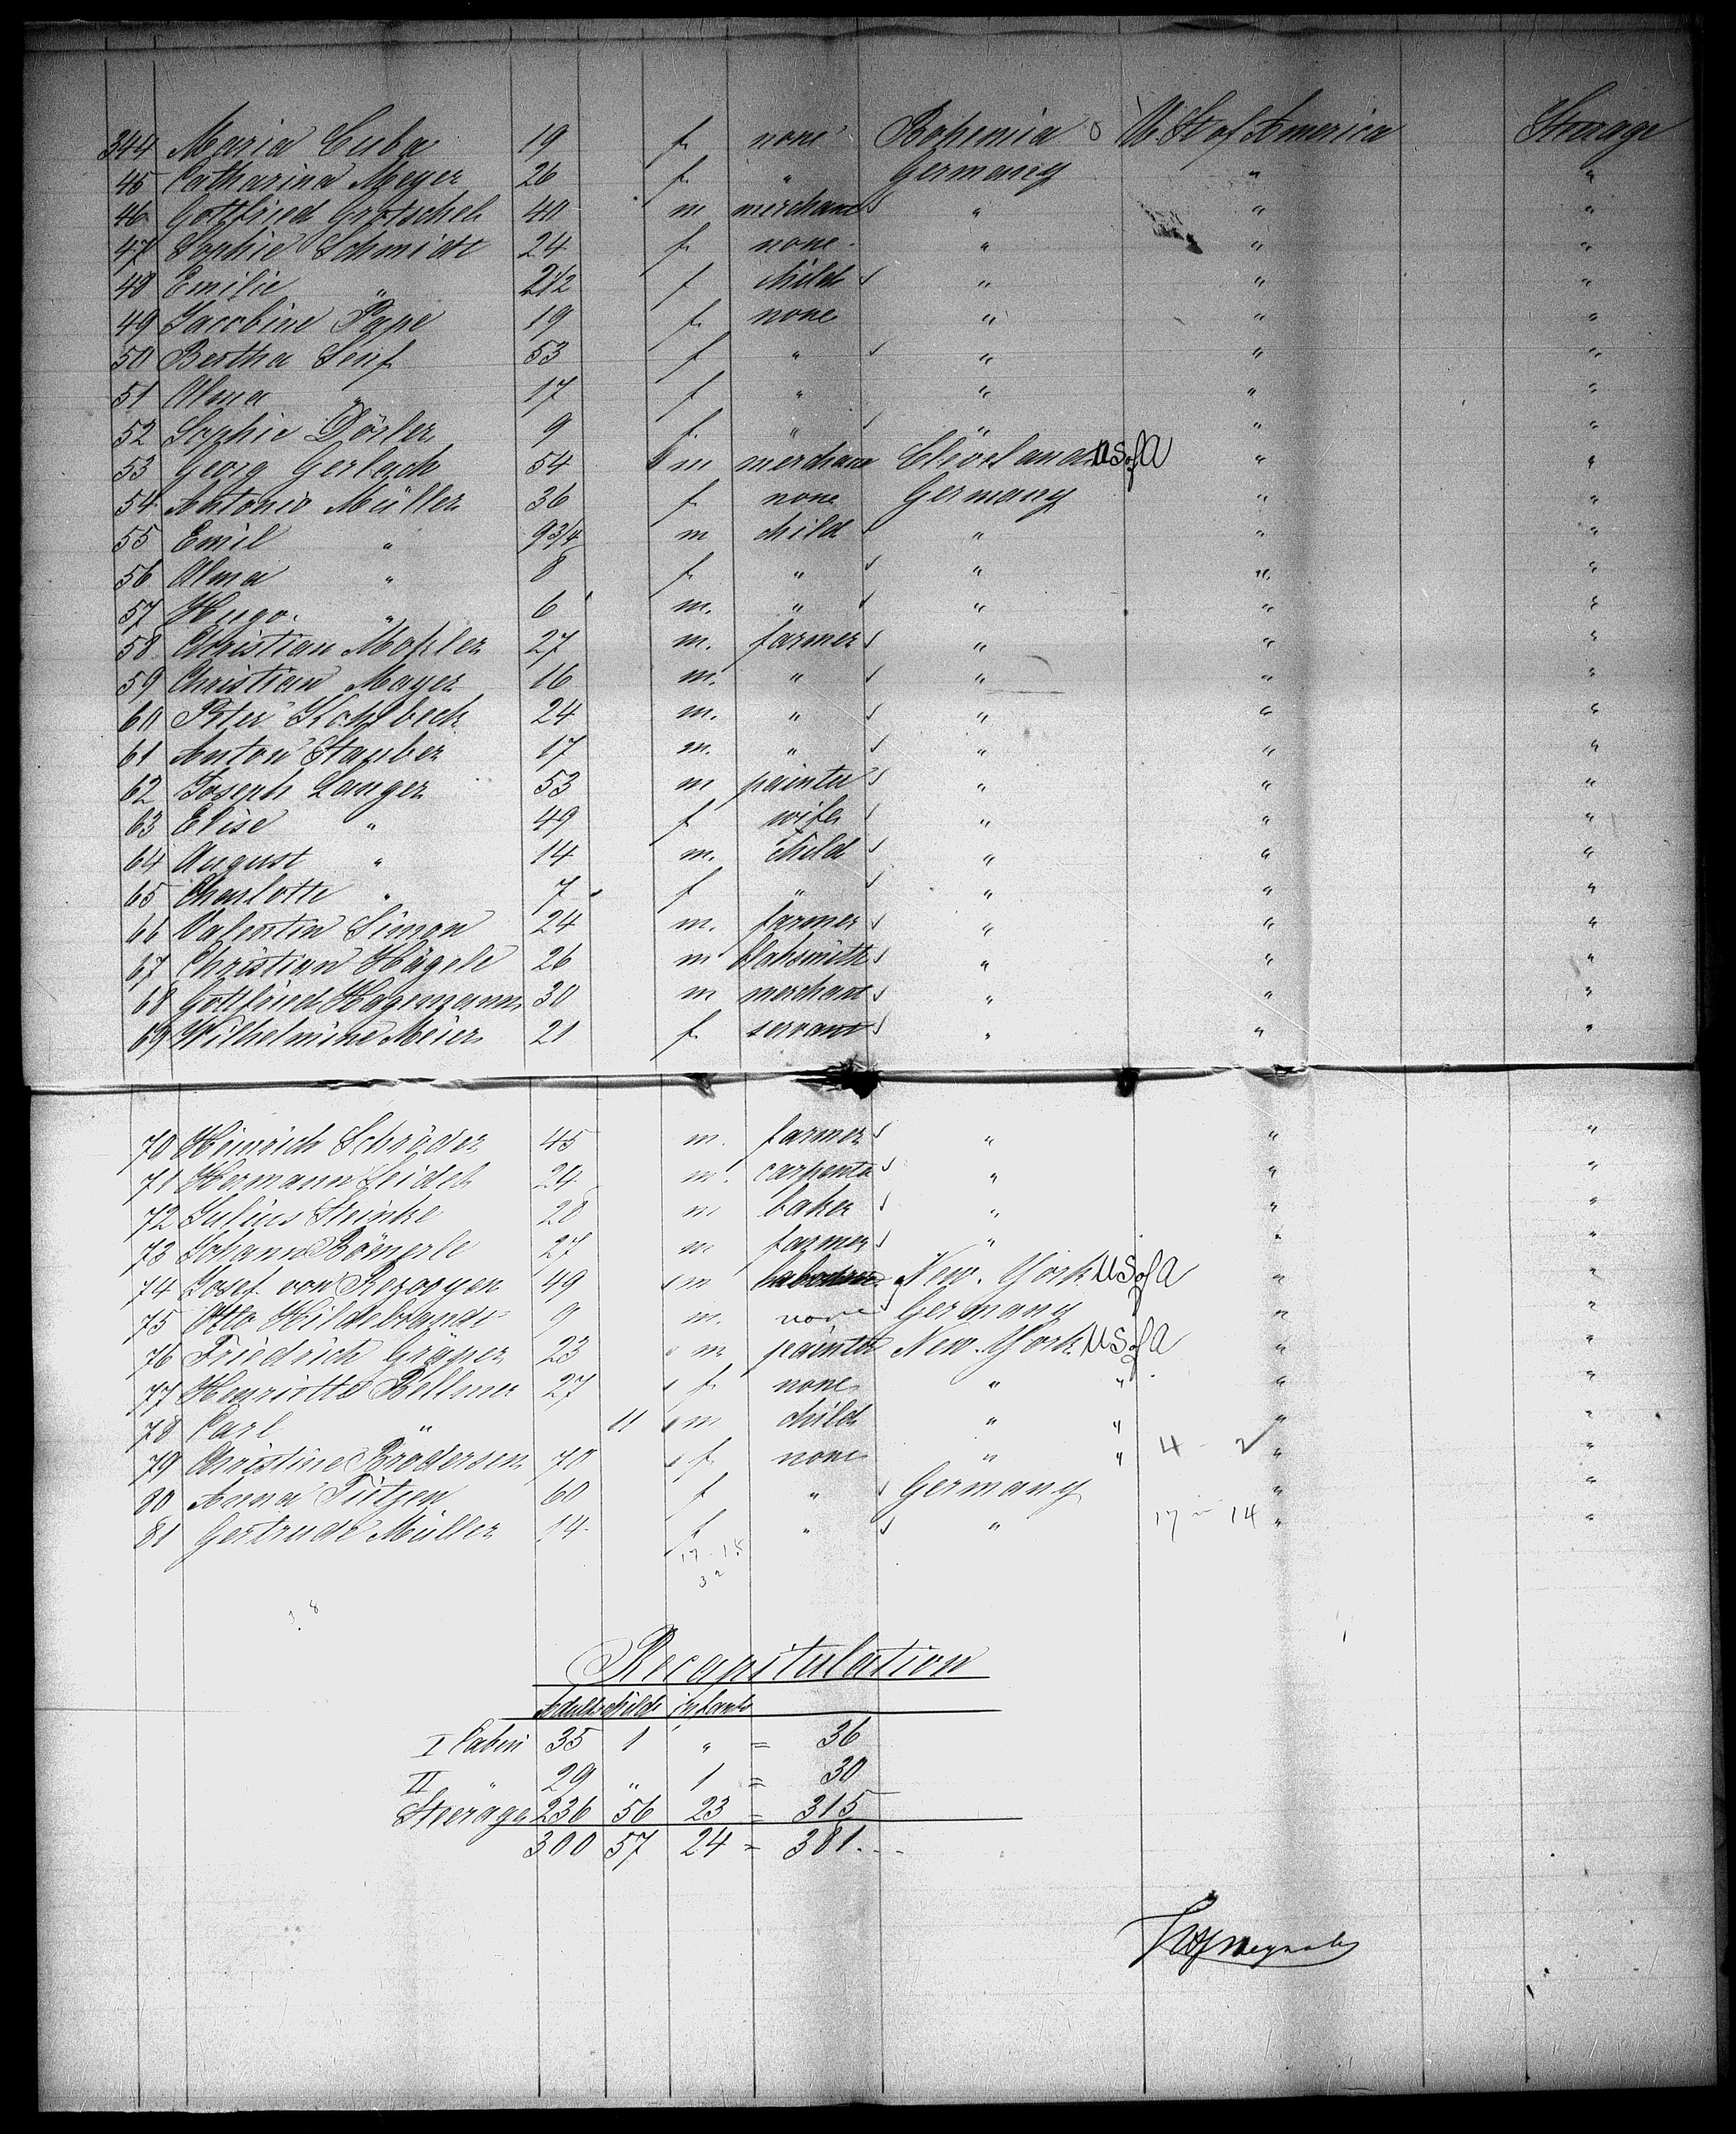 344 Maria Cuba 19 f. none Bohemia U. St. of America Steerage
45 Catharina Meyer 26 f. " Germany " "
46 Gottfried Grötschel 40 m merchant " " "
47 Sophie Schmidt 24 f. none " " "
48 Emilie " 2 1/2 f child " " "
49 Jacobine Pape 19 f. none " " "
50 Bertha Senf 53 f " " " "
51 Alma " 17 f " " " "
52 Sophie Dörler 9 f. " " " "
53 Georg Gerlach 54 m merchant Cleveland U S of A " "
54 Antonie Müller 36 f. none Germany " "
55 Emil " 9 3/4 m child " " "
56 Alma " 8 f. " " " "
57 Hugo " 6 m. " " " "
58 Christian Mohler 27 m. farmer " " "
59 Christian Mayer 16 m. " " " "
60 Peter 24 m. " " " "
61 Anton Stauber 17 m. " " " "
62 Joseph Langer 53 m painter " " "
63 Elise " 49 f wife " " "
64 August " 14 m. child " " "
65 Charlotte " 7 f " " " "
66 Valentin Simon 24 m. farmer " " "
67 Christian Hägele 26 m blaksmith " " "
68 Gottfried Hagemann 30 m merchant " " "
69 Wilhelmine Meier 21 f. servant " " "
70 Heinrich Schröder 45 m. farmer " " "
71 Hermann Seidel 24 m. carpenter " " "
72 Julius Steinke 28 m baker " " "
73 Johann Bömerle 27 m farmer " " "
74 Josef von 49 m New York U S of A " "
75 Otto Hildebrandt 9 m. none Germany " "
76 Friedrich Gräper 23 m painter New York U S of A " "
77 Henriette Bellmer 27 f. none " " " "
78 Carl " 11 m child " " " "
79 Christine Brodersen 70 f. none " " 4 - 2 " "
80 Anna Tietjen 60 f " Germany " "
81 Gertrude Müller 14 f " " 17 - 14 " "
17 - 15
32
Recapitulation
Adults childr infants
I Cabin 35 1 " = 36
II " 29 " 1 = 30
Steerage 236 56 23 = 315
300 57 24 = 381